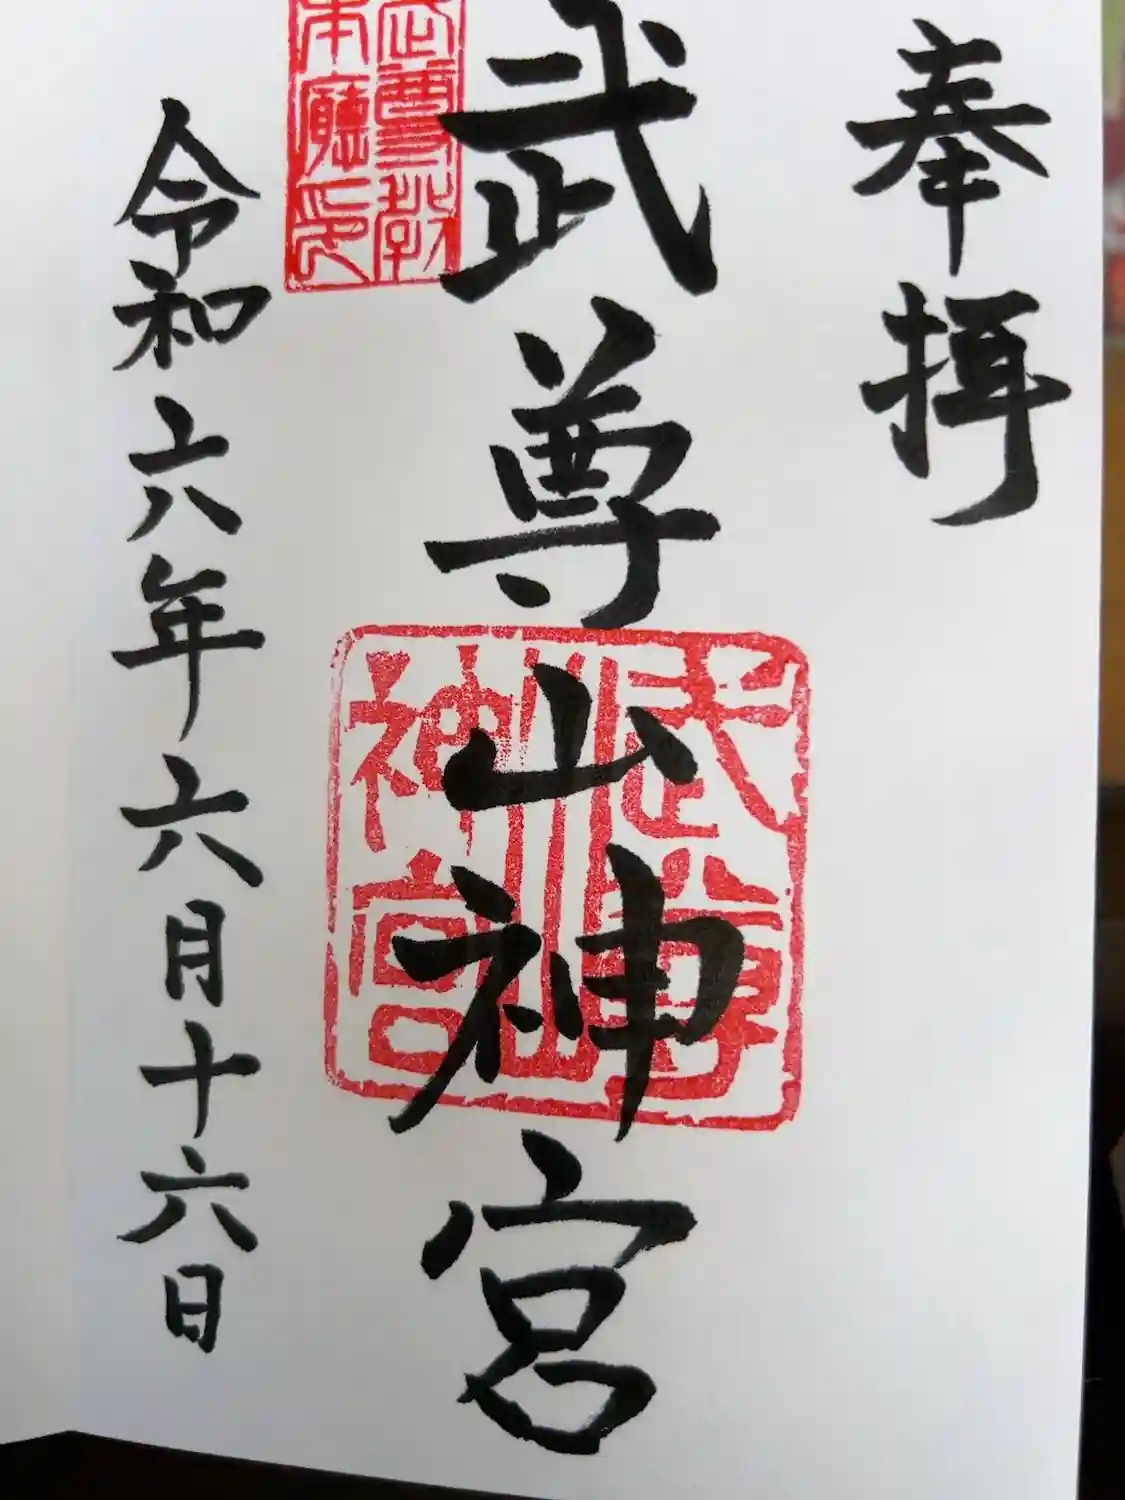 奉拝
武尊山神宮
武尊教
本廳印
武尊
山
神宮
令和六年六月十六日